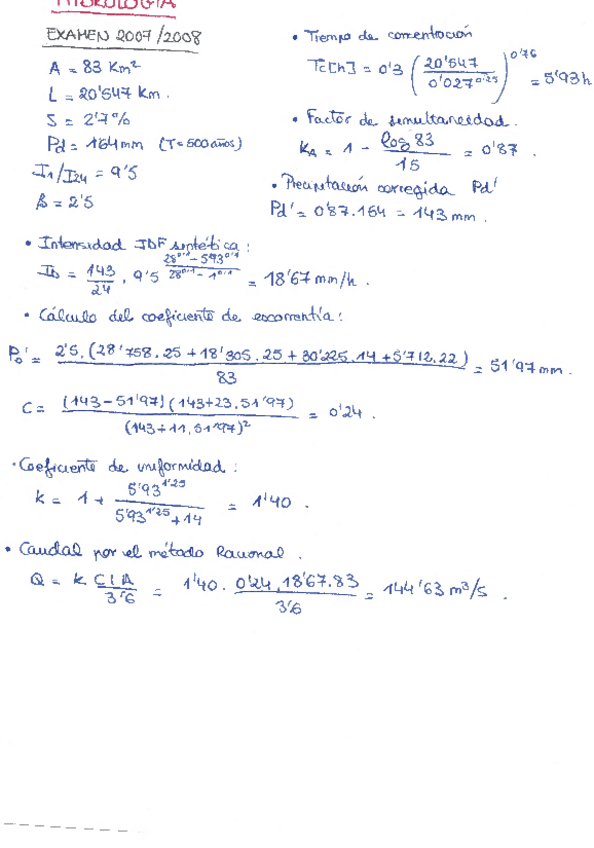 HIDROLOGÍA
EXAMEN 2007/2008
A = 83 Km²
L = 20'547 Km.
S = 2'7%
Pd = 164mm (T=500 años)
I1/I24 = 9'5
β = 2'5
• Tiempo de concentración
Tc[h] = 0'3 (20'547 / 0'027^0'25)^0'76 = 5'93h
• Factor de simultaneidad.
KA = 1 - log 83 / 15 = 0'87.
• Precipitación corregida Pd'
Pd' = 0'87.164 = 143 mm.
• Intensidad IDF sintética:
ID = 143/24 . 9'5^((28^0'1 - 5'93^0'1) / (28^0'1 - 1^0'1)) = 18'67 mm/h.
• Cálculo del coeficiente de escorrentía:
Po' = 2'5.(28'758.25 + 18'305.25 + 30'225.14 + 5'712.22) / 83 = 51'97 mm.
C = (143-51'97)(143+23.51'97) / (143+11.51'97)² = 0'24.
• Coeficiente de uniformidad:
K = 1 + 5'93^1'25 / (5'93^1'25 + 14) = 1'40.
• Caudal por el método Racional.
Q = K C I A / 3'6 = 1'40 . 0'24.18'67.83 / 3'6 = 144'63 m³/s.